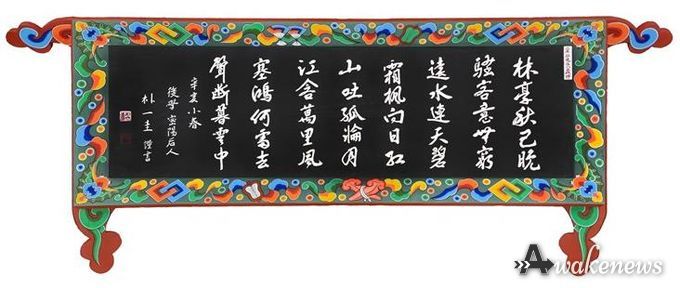 林亭秋已晚
騷客意無窮
遠水連天碧
霜楓向日紅
山吐孤輪月
江含萬里風
塞鴻何處去
聲斷暮雲中
辛亥小春
後學 密陽后人
朴一圭 謹書
Awakenews